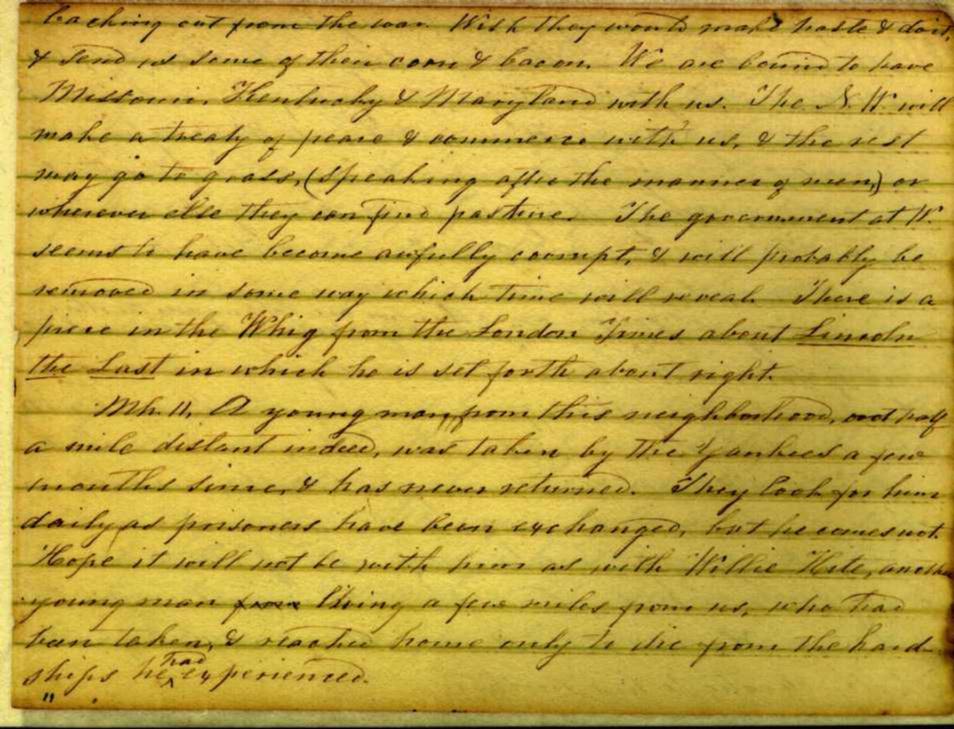 backing out from the war. Wish they would make haste & do it,
& send us some of their corn & bacon. We are bound to have
Missouri, Kentucky & Maryland with us. The N. W. will
make a treaty of peace & commerce with us, & the rest
may go to grass, (speaking after the manner of men,) or
wherever else they can find pasture. The government at W.
seems to have become awfully corrupt, & will probably be
removed in some way which time will reveal. There is a
piece in the Whig from the London Times about Lincoln
the Last in which he is set forth about right.
Mh. 11. A young man from this neighborhood, not half
a mile distant indeed, was taken by the Yankees a few
months since, & has never returned. They look for him
daily as prisoners have been exchanged, but he comes not.
Hope it will not be with him as with Willie Kite, another
young man from living a few miles from us, who had
been taken, & reached home only to die from the hard-
ships he had experienced.
"